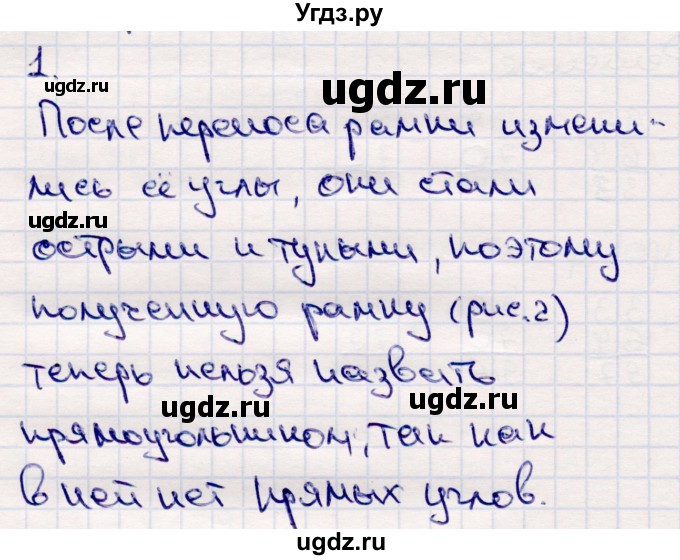 Угдз.ру
1.
ugdz.ru
ugdz.ru
После переноса рамки измени-
лись её углы, они стали
ugdz.ru
острыми и тупыми, поэтому
полученную рамку (рис.2)
теперь нельзя назвать
ugdz.ru
ugdz.ru
прямоугольником, так как
в ней нет прямых углов.
ugdz.ru